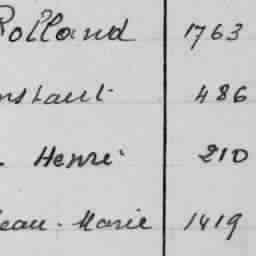 Rolland 1763
nstant 486
Henri 210
Jean-Marie 1419